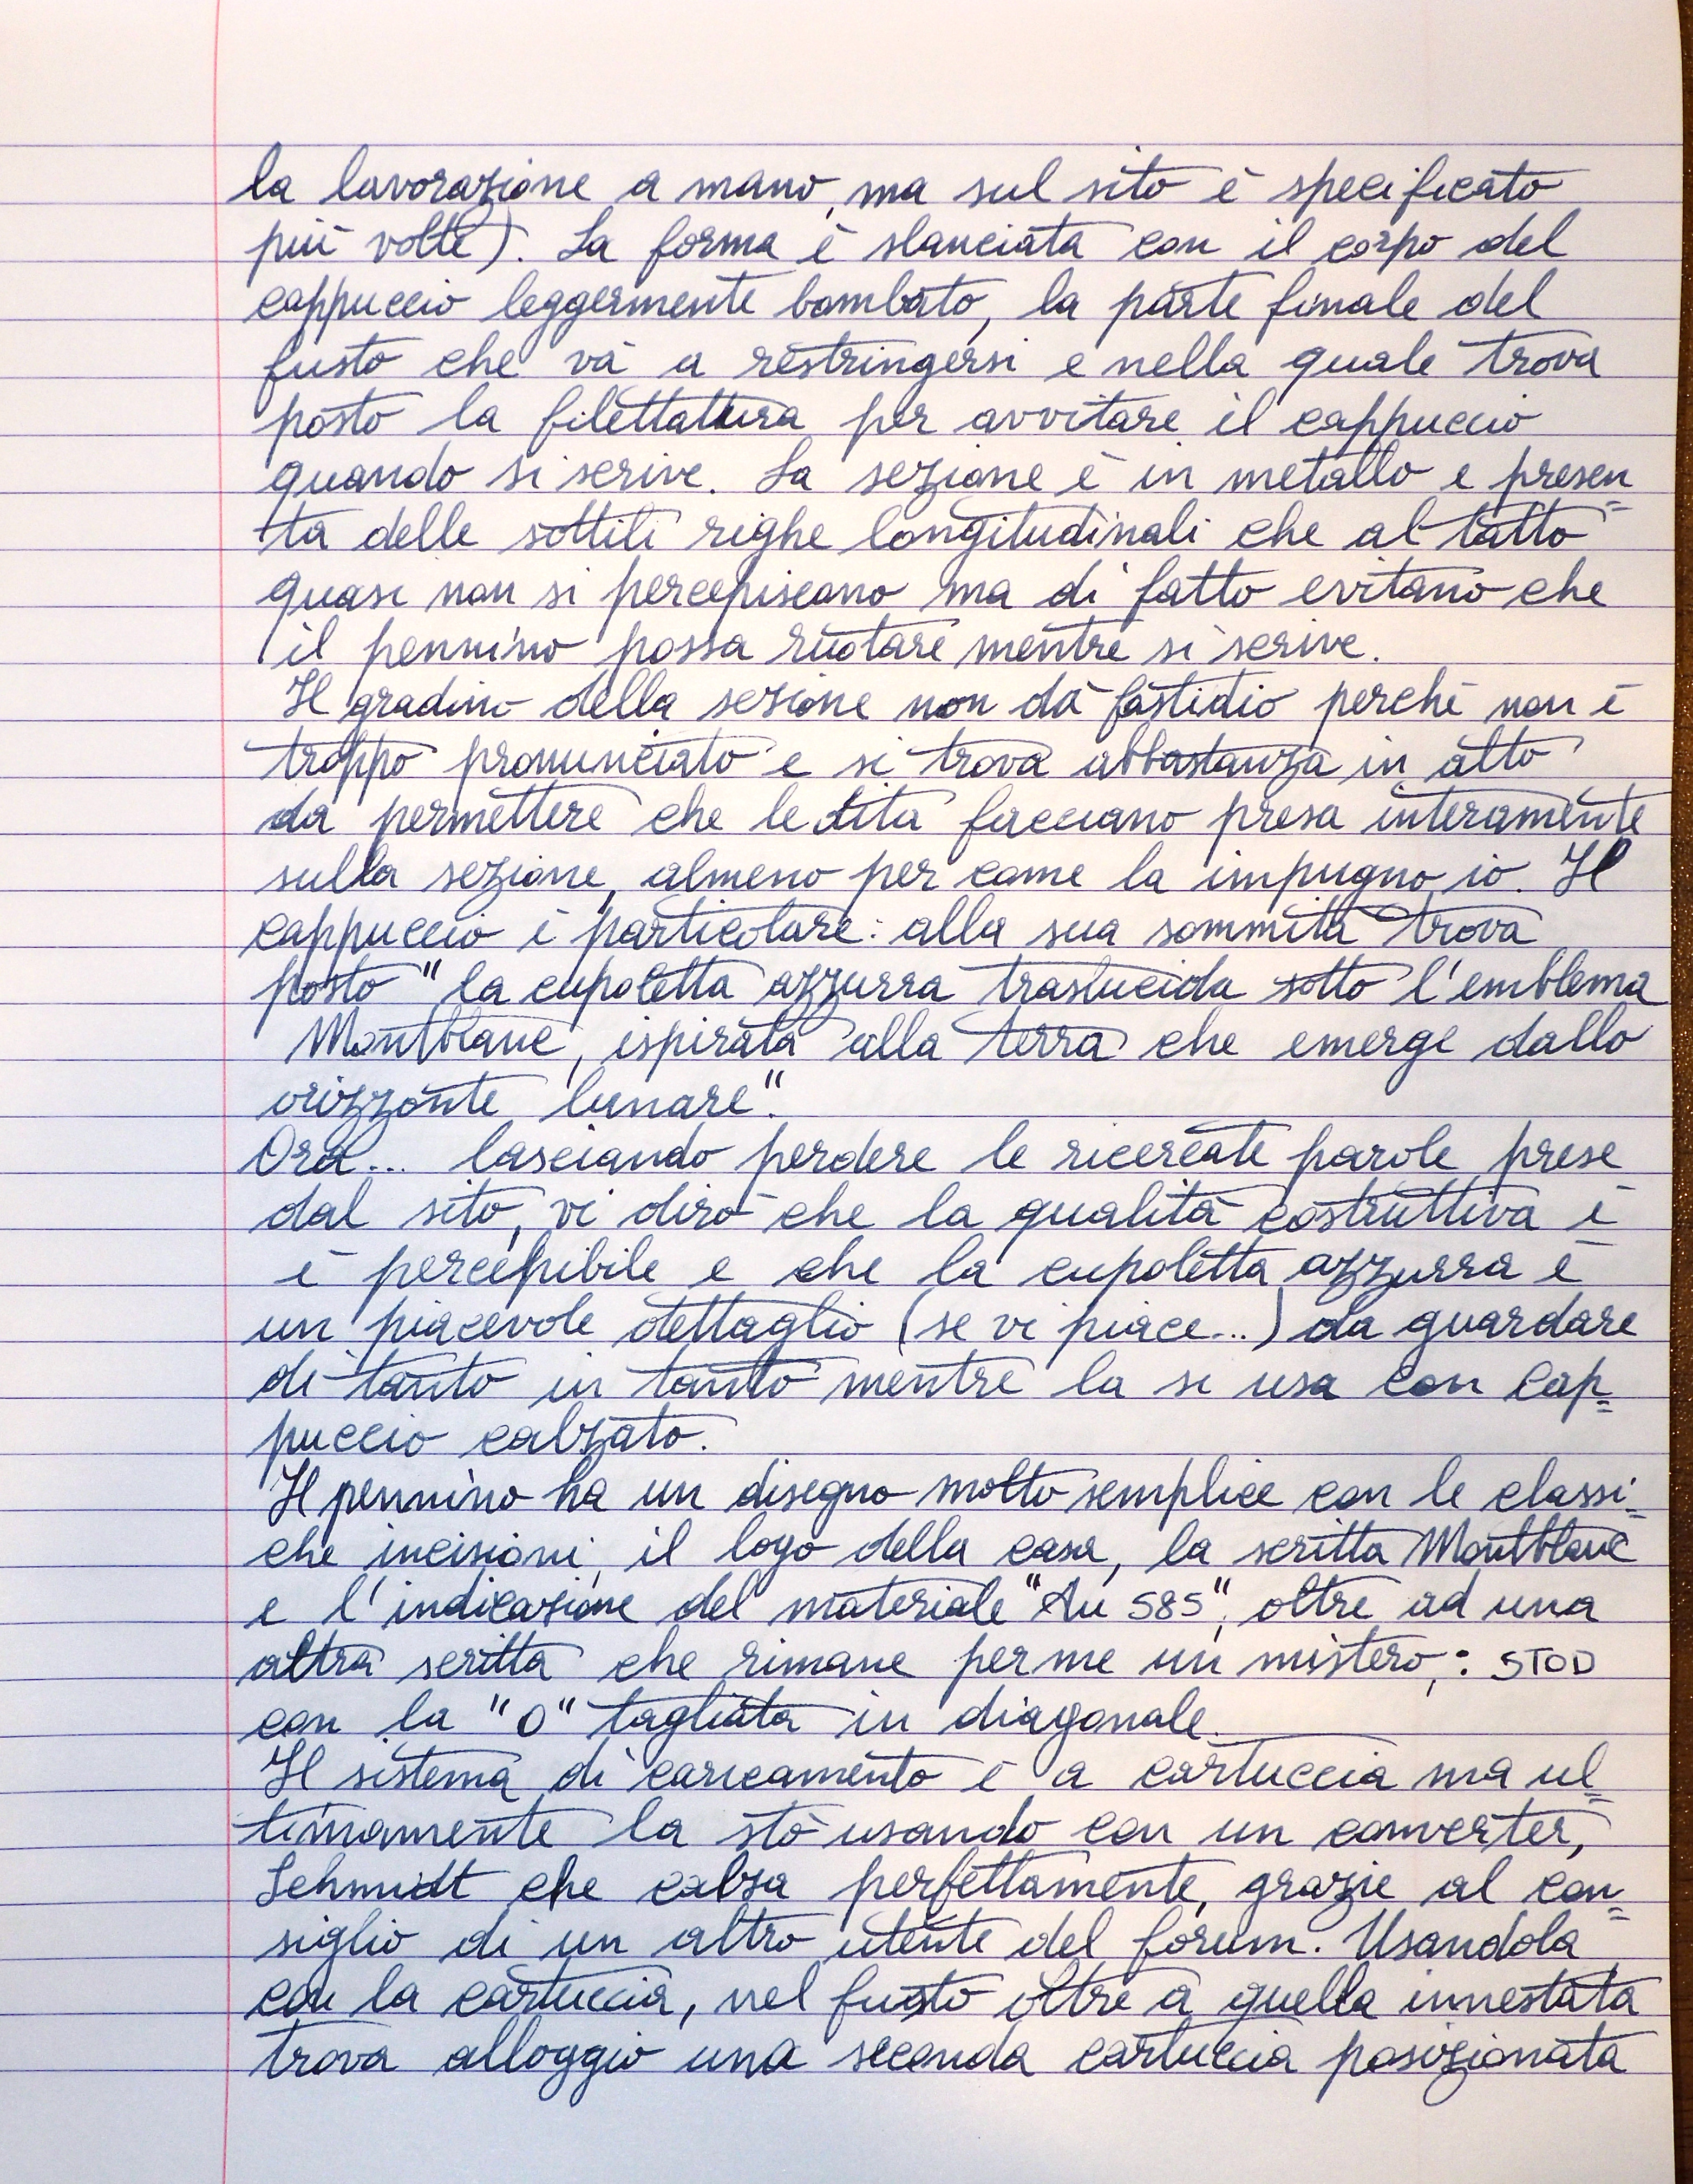 la lavorazione a mano, ma sul sito è specificato
più volte). La forma è slanciata con il corpo del
cappuccio leggermente bombato, la parte finale del
fusto che và a restringersi e nella quale trova
posto la filettattura per avvitare il cappuccio
quando si scrive. La sezione è in metallo e presen=
ta delle sottili righe longitudinali che al tatto
quasi non si percepiscono ma di fatto evitano che
il pennino possa ruotare mentre si scrive.
Il gradino della sezione non dà fastidio perchè non è
troppo pronunciato e si trova abbastanza in alto
da permettere che le dita facciano presa interamente
sulla sezione, almeno per come la impugno io. Il
cappuccio è particolare: alla sua sommità trova
posto "la cupoletta azzurra traslucida sotto l'emblema
Montblanc, ispirata alla terra che emerge dallo
orizzonte lunare".
Ora... lasciando perdere le ricercate parole prese
dal sito, vi dirò che la qualità costruttiva è
è percepibile e che la cupoletta azzurra è
un piacevole dettaglio (se vi piace...) da guardare
di tanto in tanto mentre la si usa con cap=
puccio calzato.
Il pennino ha un disegno molto semplice con le classi=
che incisioni, il logo della casa, la scritta Montblanc
e l'indicazione del materiale "Au 585", oltre ad una
altra scritta che rimane per me un mistero,: STOD
con la "O" tagliata in diagonale.
Il sistema di caricamento è a cartuccia ma ul=
timamente la stò usando con un converter,
Schmidt che calza perfettamente, grazie al con=
siglio di un altro utente del forum. Usandola
con la cartuccia, nel fusto oltre a quella innestata
trova alloggio una seconda cartuccia posizionata